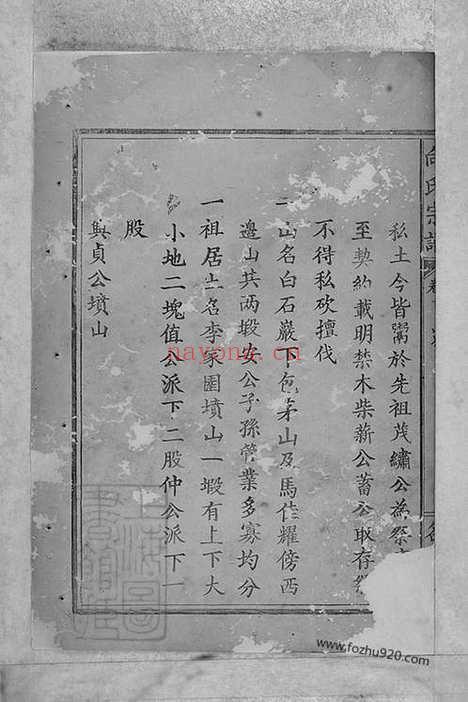 氏宗譜
私土今皆鬻於先祖茂繡公為祭
至契約載明禁木柴薪公蓄公取存
不得私砍擅伐
一山名白石巖下包茅山及馬佳耀傍西
邊山其两塅安公子孫管業多寡均分
一祖居土名李家園墳山一塅有上下大
小地二塊值公派下二股仲公派下一
股
與貞公墳山
nayona.cn
www.fozhu920.com